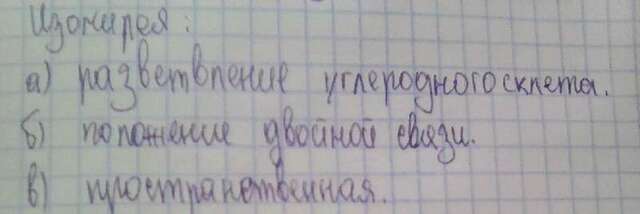 Изомирея:
а) разветвление углеродного склета.
б) положение двойной связи.
в) пространственная.